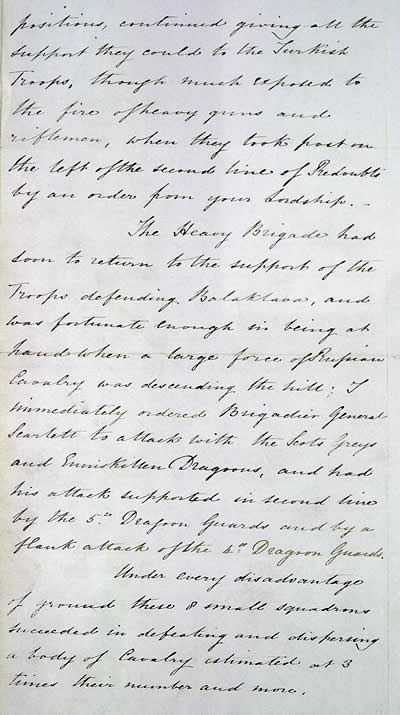 positions, continued giving all the
support they could to the Turkish
Troops, though much exposed to
the fire of heavy guns and
riflemen, when they took post on
the left of the second line of Redoubts
by an order from your Lordship. -
The Heavy Brigade had
soon to return to the support of the
Troops defending Balaklava, and
was fortunate enough in being at
hand when a large force of Russian
Cavalry was descending the hill; I
immediately ordered Brigadier General
Scarlett to attack with the Scots Greys
and Enniskillen Dragoons, and had
his attack supported in second line
by the 5th Dragoon Guards and by a
flank attack of the 4th Dragoon Guards.
Under every disadvantage
of ground these 8 small squadrons
succeeded in defeating and dispersing
a body of Cavalry estimated at 3
times their number and more.